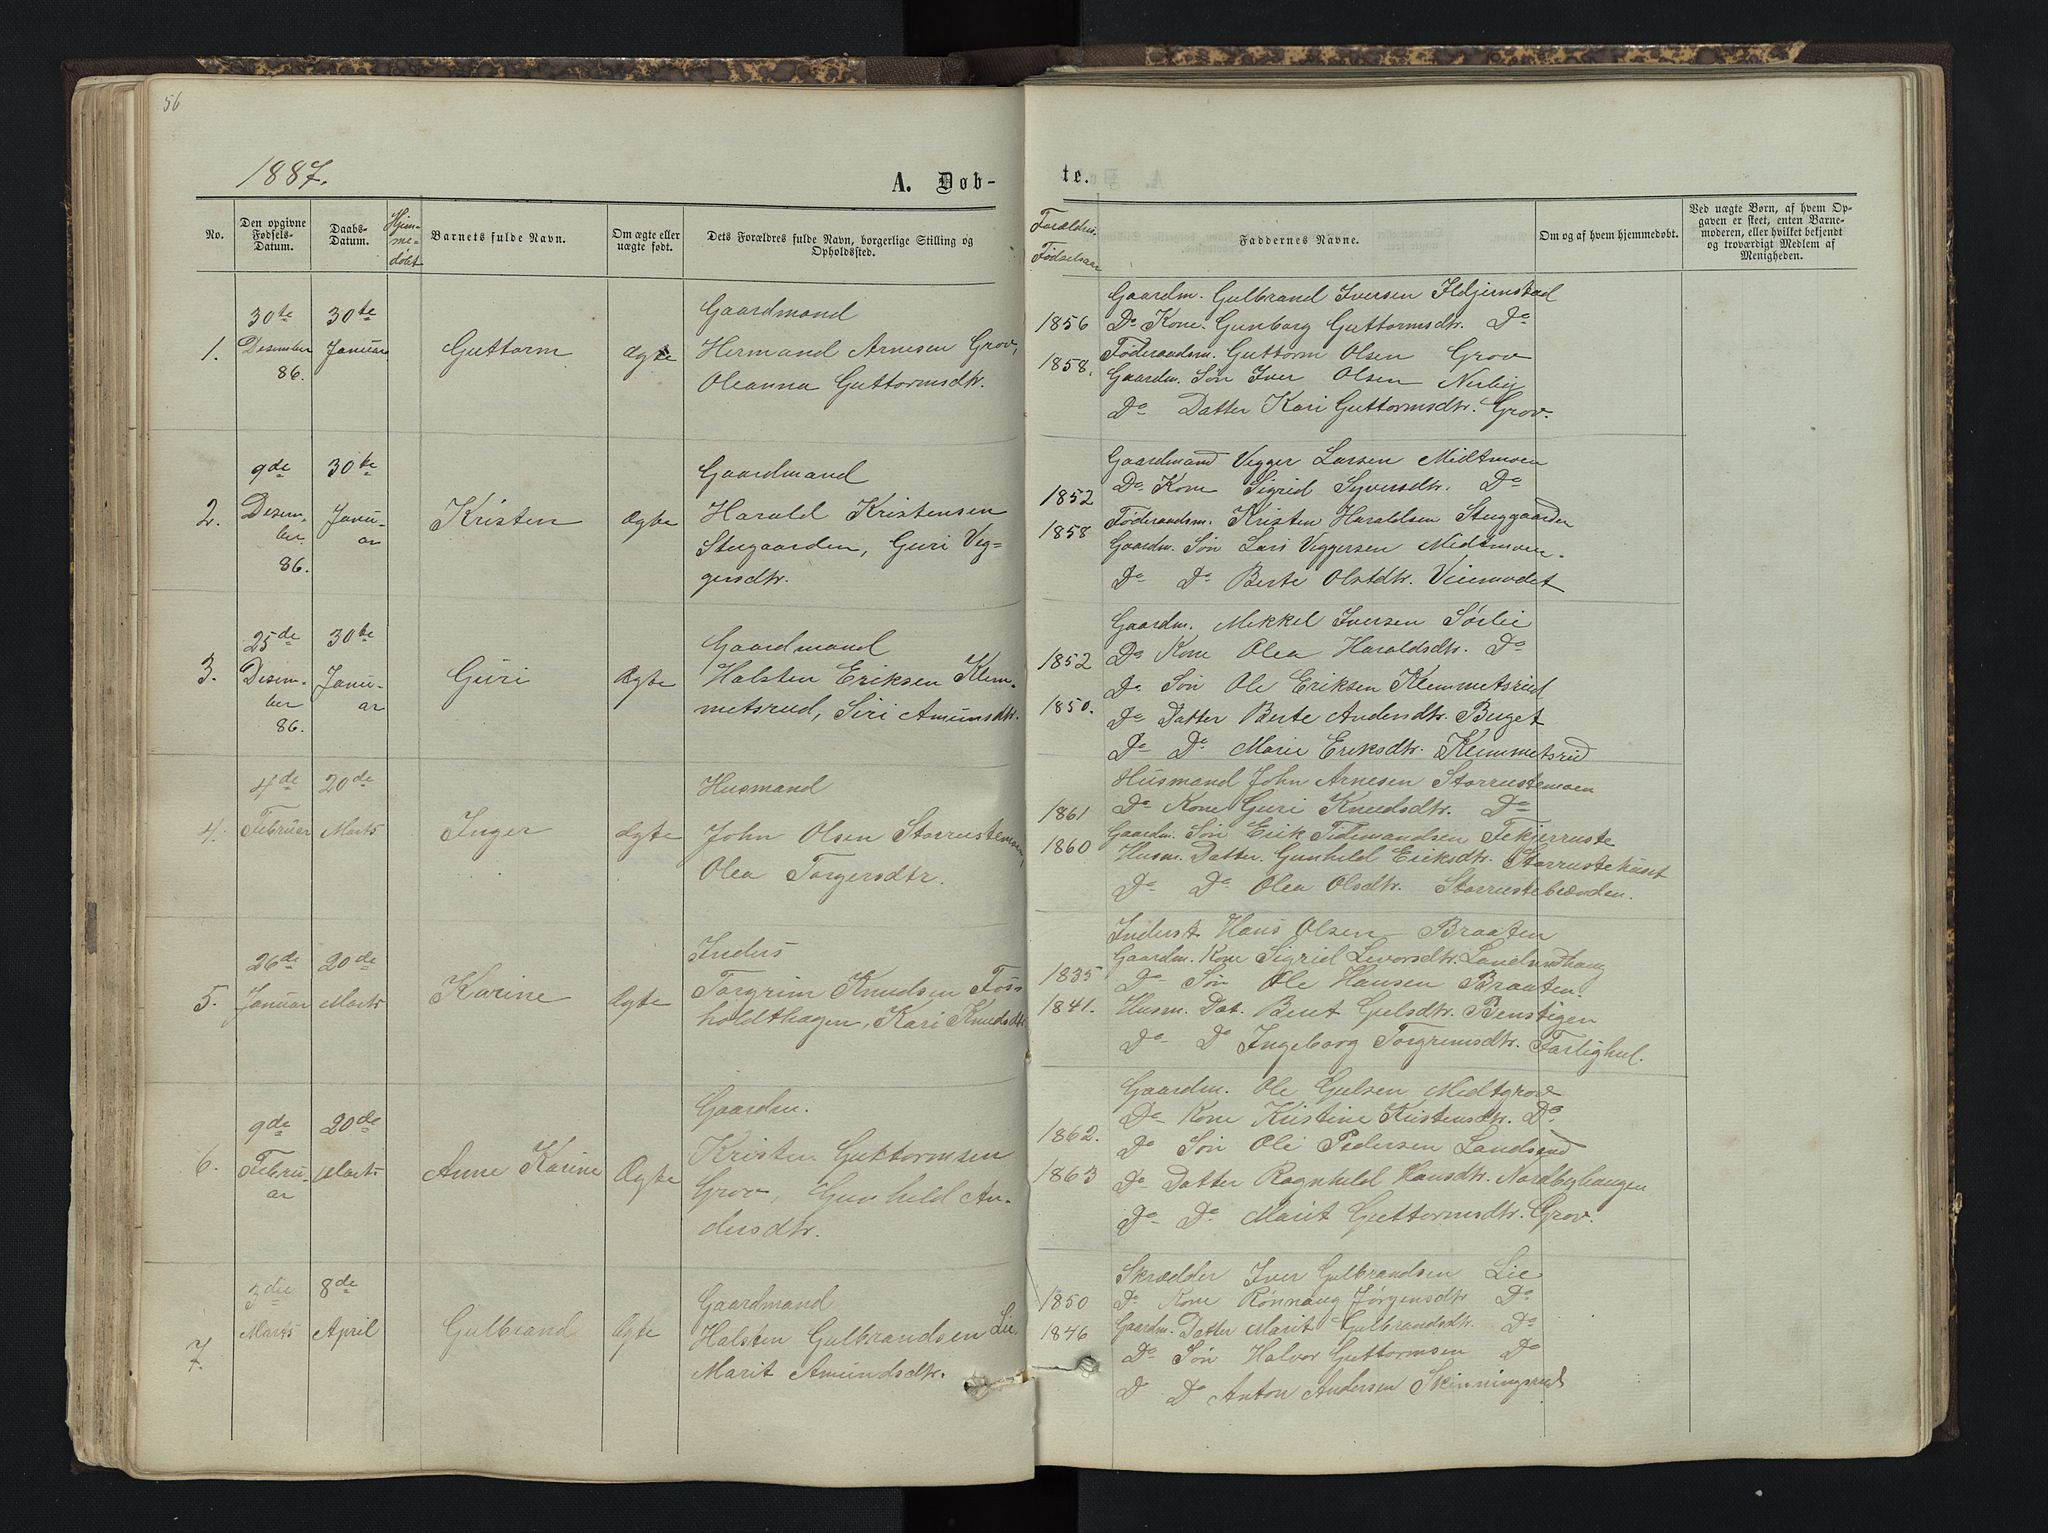 56
1887.
A. Døb-
No.
Den opgivne Fødsels-Datum.
Daabs-Datum.
Hjem-me-døbt
Barnets fulde Navn.
Om ægte eller uægte født.
Dets Forældres fulde Navn, borgerlige Stilling og Opholdssted.
1.
30te Desember 86.
30te Januar
Guttorm
Ægte
Gaardmand
Hermand Arnesen Grov,
Oleanna Guttormsdtr.
2.
9de Desem-ber. 86.
30te Janu-ar
Kristen
Ægte
Gaardmand
Harald Kristensen
Stugaarden, Guri Veg-
gersdtr.
3.
25de Desem-ber 86.
30te Janu-ar
Guri
Ægte
Gaardmand
Halsten Eriksen Klem-
metsrud, Siri Amundsdtr.
4.
4de Februar
20de Marts
Inger
Ægte
Husmand
John Olsen Storrustemoen,
Olea Torgersdtr.
5.
26de Januar
20de Marts
Karine
Ægte
Inders
Torgrim Knudsen Foss-
holdthagen, Kari Knudsdtr
6.
9de Febru-ar
20de Marts
Anne Karine
Ægte
Gaardm.
Kristen Guttormsen
Grov, Gunhild An-
dersdtr.
7.
3die Marts
8de April
Gulbrand
Ægte
Gaardmand
Halsten Gulbrandsen Lie
Marit Amundsdtr.
te.
Forældres Fødselsaar
Faddernes Navne.
Om og af hvem hjemmedøbt.
Ved uægte Børn, af hvem Op-
gaven er skeet, enten Barne-
moderen, eller hvilket bekjendt
og troværdigt Medlem af
Menigheden.
Gaardm. Gulbrand Iversen
1856 Do Kone. Gunborg Guttormsdtr. Do
1858. Føderaadsm. Guttorm Olsen Grov
Gaardm. Søn Iver Olsen Nerby
Do Datter Kari Guttormsdtr. Grov.
Gaardmand Vegger Larsen Midtmoen
1852 Do Kone Sigrid Syversdtr. Do
1858 Føderaadsm. Kristen Haraldsen Stuggaarden
Gaardm. Søn Lars Veggersen Midtmoen.
Do Do Berte Olsdtr.
Gaardm. Mekkel Iversen Sørlie
1852 Do Kone Olea Haraldsdtr. Do
Do Søn Ole Eriksen Klemmetsrud
1850. Do Datter Berte Andersdtr. Berget
Do Do Marie Eriksdtr. Klemmetsrud
Husmand John Arnesen Storrustemoen
1861 Do Kone Guri Knudsdtr. Do
Gaardm. Søn Erik Tidemandsen
1860 Husm. Datter. Gunhild Eriksdtr. Storrustehuset
Do Do Olea Olsdtr.
Inderst Hans Olsen Braaten
Gaardm. Kone Sigrid Levorsdtr.
1835 Do Søn Ole Hansen Braaten.
1841. Husm. Dat. Berit Gulsdtr. Benstigen
Do Do Ingeborg Torgrimsdtr.
Gaardm. Ole Gulsen Midtgrov
Do Kone Kristine Kristensdtr. Do
1862. Do Søn Ole Pedersen
1863 Do Datter Ragnhild Hansdtr. Nordbyhaugen
Do Do Marit Guttormsdtr. Grov.
Skrædder Iver Gulbrandsen Lie
1850 Do Kone Rønnaug Jørgensdtr Do
1846 Gaardm. Datter Marit Gulbrandsdtr. Do
Do Søn Halvor Guttormsen Do
D Do Anton Andersen Skinningsrud